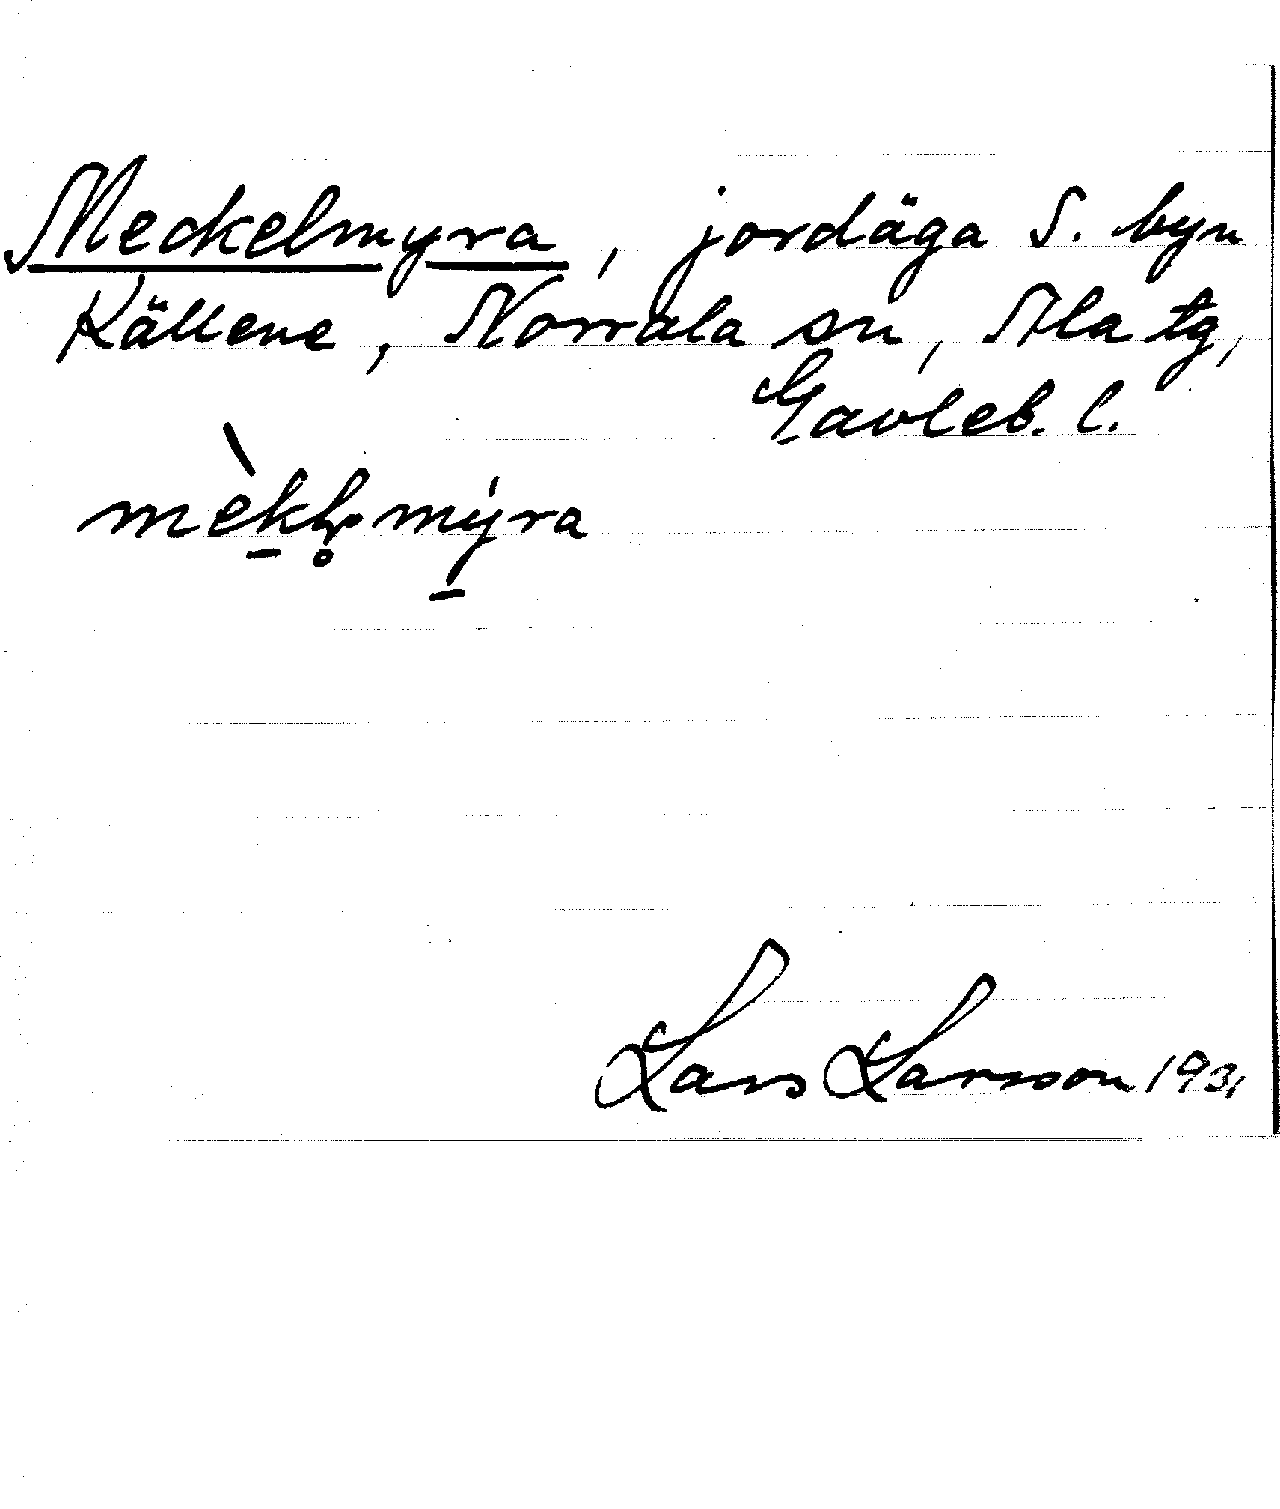 Meckelmyra, jordäga S. byn
Källene, Norrala sn, Ala tg,
Gävleb. l.
Lars Larsson 1931